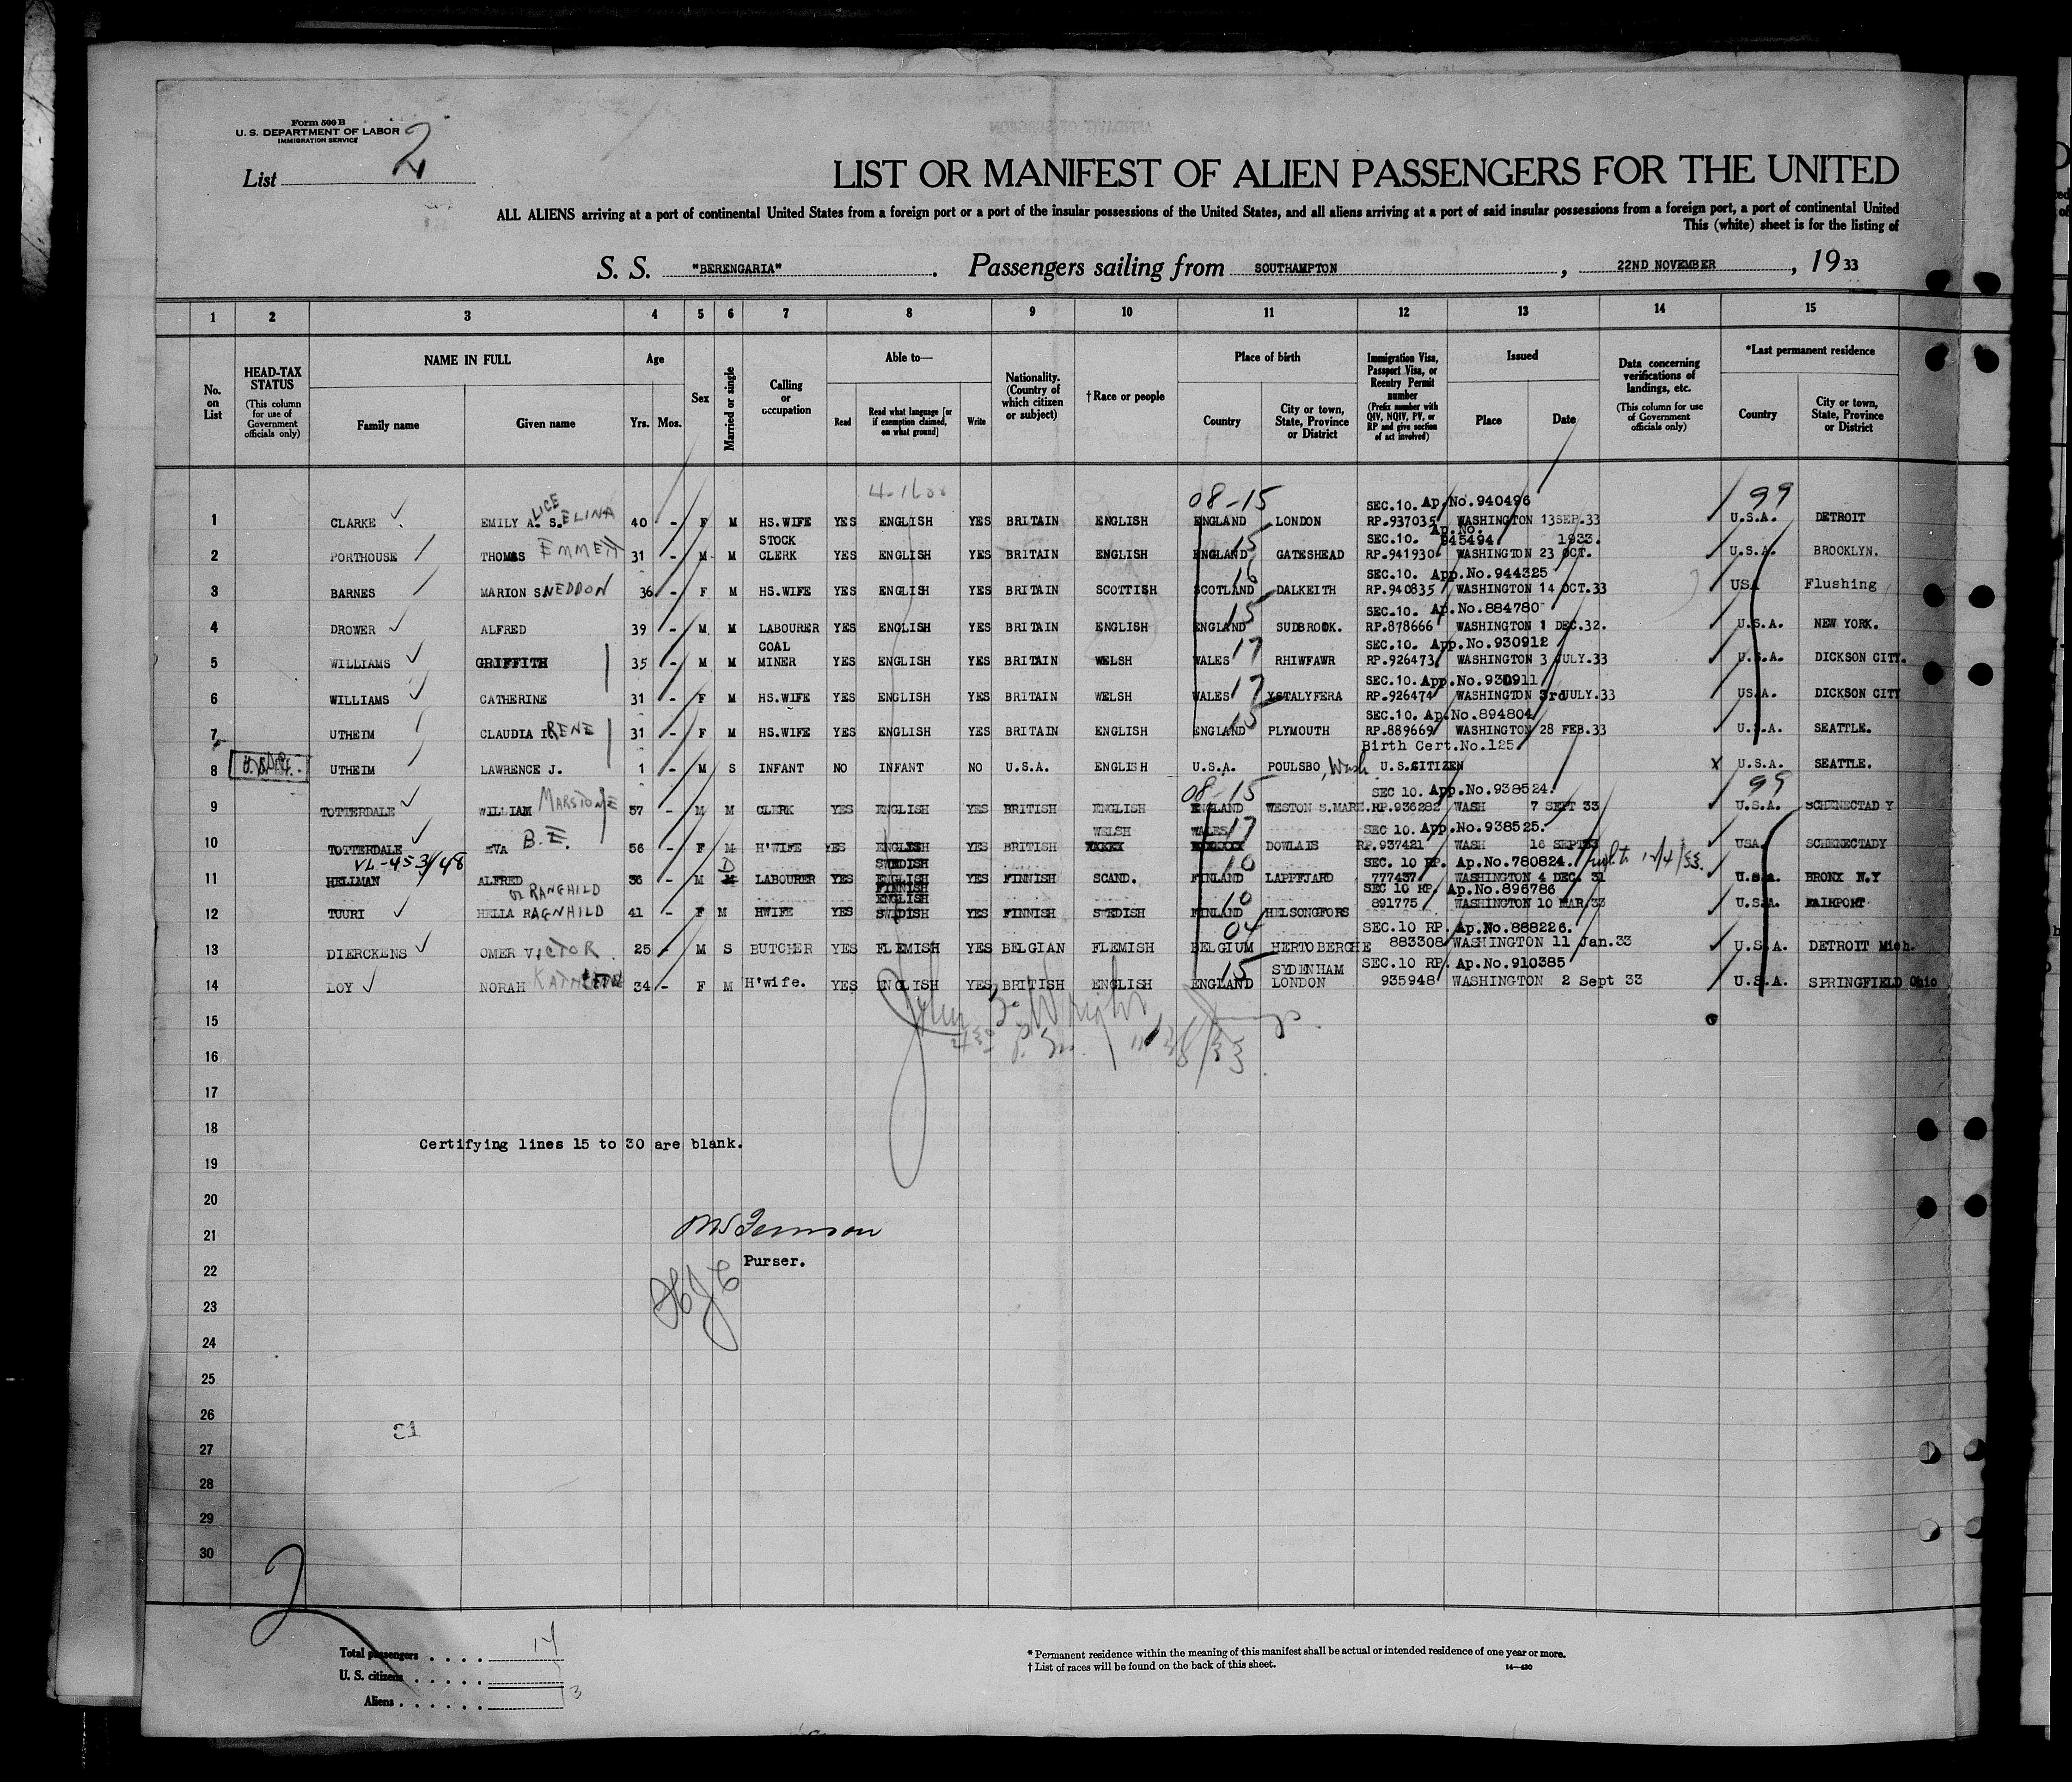 Form 500 B
U. S. DEPARTMENT OF LABOR
IMMIGRATION SERVICE
List 2
LIST OR MANIFEST OF ALIEN PASSENGERS FOR THE UNITED
ALL ALIENS arriving at a port of continental United States from a foreign port or a port of the insular possessions of the United States, and all aliens arriving at a port of said insular possessions from a foreign port, a port of continental United
This (white) sheet is for the listing of
S. S. "BERENGARIA". Passengers sailing from SOUTHAMPTON, 22ND NOVEMBER, 1933
1 2 3 4 5 6 7 8 9 10 11 12 13 14 15
No. on List
HEAD-TAX STATUS (This column for use of Government officials only)
NAME IN FULL Family name Given name
Age Yrs. Mos.
Sex
Married or single
Calling or occupation
Able to— Read Read what language [or if exemption claimed, on what ground] Write
Nationality. (Country of which citizen or subject)
†Race or people
Place of birth Country City or town, State, Province or District
Immigration Visa, Passport Visa, or Reentry Permit number (Prefix number with QIV, NQIV, PV, or RP and give section of act involved)
Issued Place Date
Data concerning verifications of landings, etc. (This column for use of Government officials only)
*Last permanent residence Country City or town, State, Province or District
LICE 4-1600 08-15 SEC.10. Ap.No.940496 99
1 CLARKE EMILY A. S. ELINA 40 - F M HS.WIFE YES ENGLISH YES BRITAIN ENGLISH ENGLAND LONDON RP.937035 WASHINGTON 13SEP.33 U.S.A. DETROIT
STOCK 15 SEC.10. Ap.No. 945494. 1933.
2 PORTHOUSE THOMAS EMMETT 31 - M M CLERK YES ENGLISH YES BRITAIN ENGLISH ENGLAND GATESHEAD RP.941930 WASHINGTON 23 OCT. U.S.A. BROOKLYN.
16 SEC.10. App.No.944325
3 BARNES MARION SNEDDON 36 - F M HS.WIFE YES ENGLISH YES BRITAIN SCOTTISH SCOTLAND DALKEITH RP.940835 WASHINGTON 14 OCT.33 USA Flushing
15 SEC.10. Ap.No.884780
4 DROWER ALFRED 39 - M M LABOURER YES ENGLISH YES BRITAIN ENGLISH ENGLAND SUDBROOK. RP.878666 WASHINGTON 1 DEC.32. U.S.A. NEW YORK.
COAL 17 SEC.10. App.No.930912
5 WILLIAMS GRIFFITH 35 - M M MINER YES ENGLISH YES BRITAIN WELSH WALES RHIWFAWR RP.926473 WASHINGTON 3 JULY.33 U.S.A. DICKSON CITY.
17 SEC.10. App.No.930911
6 WILLIAMS CATHERINE 31 - F M HS.WIFE YES ENGLISH YES BRITAIN WELSH WALES YSTALYFERA RP.926474 WASHINGTON 3rdJULY.33 USA. DICKSON CITY
15 SEC.10. Ap.No.894804
7 UTHEIM CLAUDIA IRENE 31 - F M HS.WIFE YES ENGLISH YES BRITAIN ENGLISH ENGLAND PLYMOUTH RP.889669 WASHINGTON 28 FEB.33 U.S.A. SEATTLE.
Birth Cert.No.125.
8 UTHEIM LAWRENCE J. 1 - M S INFANT NO INFANT NO U.S.A. ENGLISH U.S.A. POULSBO, Wash U.S.CITIZEN X U.S.A. SEATTLE.
08-15 SEC 10. App.No.938524. 99
9 TOTTERDALE WILLIAM MARSTONE 57 - M M CLERK YES ENGLISH YES BRITISH ENGLISH ENGLAND WESTON S.MARE. RP.936282 WASH 7 SEPT 33 U.S.A. SCHENECTADY
WELSH WALES 17 SEC 10. App.No.938525.
10 TOTTERDALE EVA B.E. 56 - F M H'WIFE YES ENGLISH YES BRITISH DOWLAIS RP.937421 WASH 16 SEPT33 USA. SCHENECTADY
VL-453/48 D SWEDISH 10 SEC. 10 RP. Ap.No.780824. 12/4/33.
11 HELLMAN ALFRED 36 - M M LABOURER YES ENGLISH YES FINNISH SCAND. FINLAND LAPPFJARD 777437 WASHINGTON 4 DEC. 31 U.S.A. BRONX N.Y
or RANGHILD FINNISH ENGLISH 10 SEC 10 RP. Ap.No.896786
12 TUURI HELLA RAGNHILD 41 - F M HWIFE YES SWEDISH YES FINNISH SWEDISH FINLAND HELSONGFORS 891775 WASHINGTON 10 MAR.33 U.S.A. FAIRPORT
04 SEC.10 RP. Ap.No.888226.
13 DIERCKENS OMER VICTOR 25 - M S BUTCHER YES FLEMISH YES BELGIAN FLEMISH BELGIUM HERTOBERGHE 883308 WASHINGTON 11 Jan.33 U.S.A. DETROIT Mich.
15 SYDENHAM SEC.10 RP. Ap.No.910385
14 LOY NORAH KATHLEEN 34 - F M H'wife. YES ENGLISH YES BRITISH ENGLISH ENGLAND LONDON 935948 WASHINGTON 2 Sept 33 U.S.A. SPRINGFIELD Ohio
15
16
17
18
Certifying lines 15 to 30 are blank.
19
20
21
Purser.
22
23
24
25
26
27
28
29
30
2
Total passengers . . . . 14
U. S. citizens . . . . .
Aliens . . . . . . 13
* Permanent residence within the meaning of this manifest shall be actual or intended residence of one year or more.
† List of races will be found on the back of this sheet.
14—430